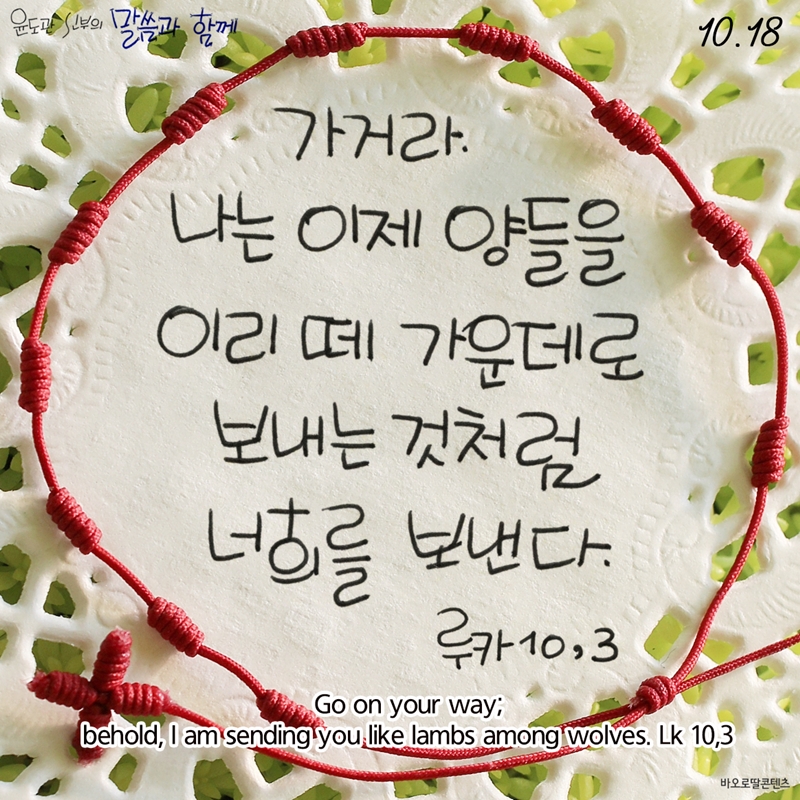 윤도관 신부의 말씀과 함께
10.18
가거라.
나는 이제 양들을
이리 떼 가운데로
보내는 것처럼
너희를 보낸다.
루카 10,3
Go on your way;
behold, I am sending you like lambs among wolves. Lk 10,3
바오로딸콘텐츠